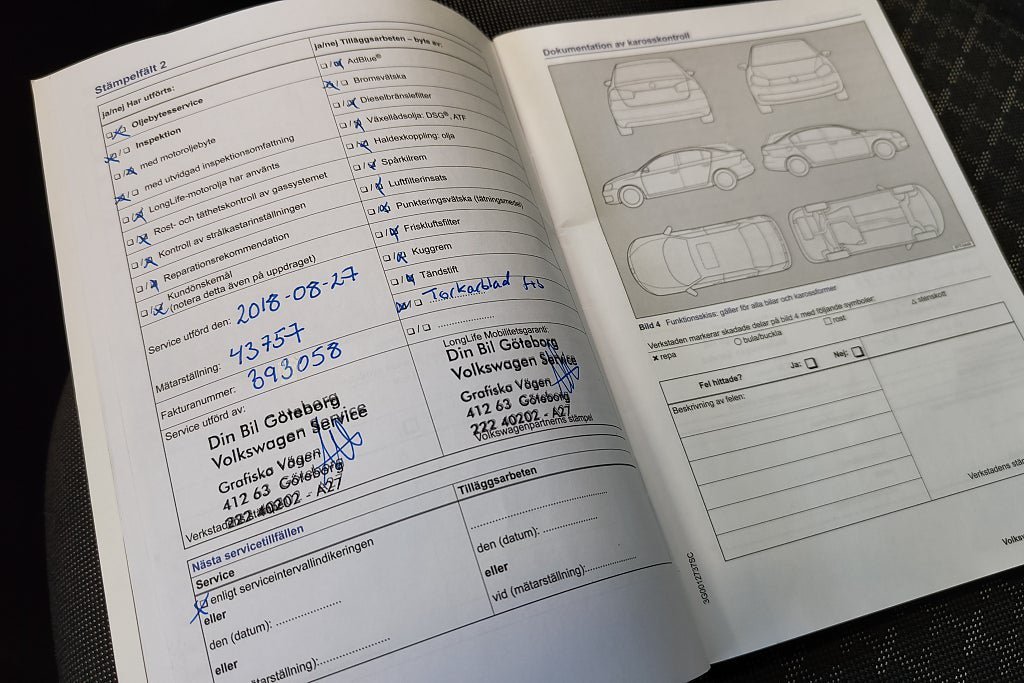 Stämpelfält 2
ja/nej Har utförts:
Oljebytesservice
Inspektion
med motoroljebyte
med utvidgad inspektionsomfattning
LongLife-motorolja har använts
Rost- och täthetskontroll av gassystemet
Kontroll av strålkastarinställningen
Reparationsrekommendation
Kundönskemål
(notera detta även på uppdraget)
Service utförd den: 2018-08-27
Mätarställning: 43757
Fakturanummer: 393058
Service utförd av:
Din Bil Göteborg
Volkswagen Service
Grafiska Vägen
412 63 Göteborg
222 40202 - A27
ja/nej Tilläggsarbeten – byte av:
AdBlue®
Bromsvätska
Dieselbränslefilter
Växellådsolja: DSG®, ATF
Haldexkoppling: olja
Spårkilrem
Luftfilterinsats
Punkteringsvätska (tätningsmedel)
Friskluftsfilter
Kuggrem
Tändstift
Torkarblad
LongLife Mobilitetsgaranti:
Din Bil Göteborg
Volkswagen Service
Grafiska Vägen
412 63 Göteborg
222 40202 - A27
Volkswagenpartnerns stämpel
Nästa servicetillfällen
Service
enligt serviceintervallindikeringen
eller
den (datum):
eller
mätarställning):
Tilläggsarbeten
den (datum):
eller
vid (mätarställning):
Dokumentation av karosskontroll
Bild 4 Funktionsskiss: gäller för alla bilar och karossformer
Verkstaden markerar skadade delar på bild 4 med följande symboler:
x repa
bula/buckla
rost
stenskott
Fel hittade? Ja: Nej:
Beskrivning av felen:
Verkstadens
3G0012737SC